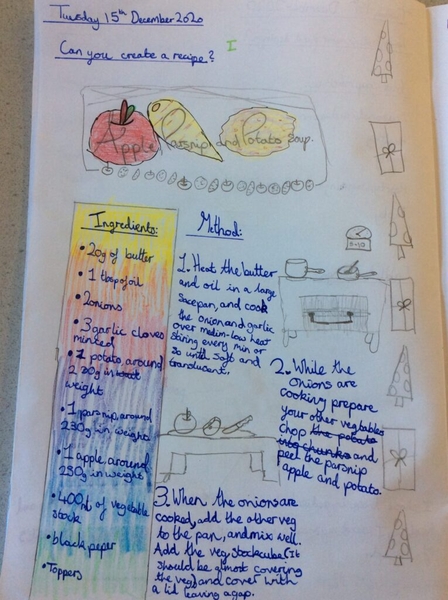 Tuesday 15th December 2020
Can you create a recipe?
I
Apple, Parsnip and Potato Soup.
Ingredients:
• 20g of butter
• 1 tbsp of oil
• 2 onions
• 3 garlic cloves
minced
• 1 potato around
230g in
weight
• 1 parsnip, around
230g in weight
• 1 apple, around
230g in weight
• 400ml of vegetable
stock
• black peper
• Toppers
Method:
1. Heat the butter
and oil in a large
sacepan, and cook
the onion and garlic
over medim-low heat
stiring every min or
so until soft and
translucent.
5-10
2. While the
onions are
cooking prepare
your other vegtables
Chop the potato
into chunks and
peel the parsnip
apple and potato.
3. When the onions are
cooked, add the other veg
to the pan, and mix well.
Add the veg stock cube (It
should be almost covering
the veg) and cover with
a lid leaving a gap.